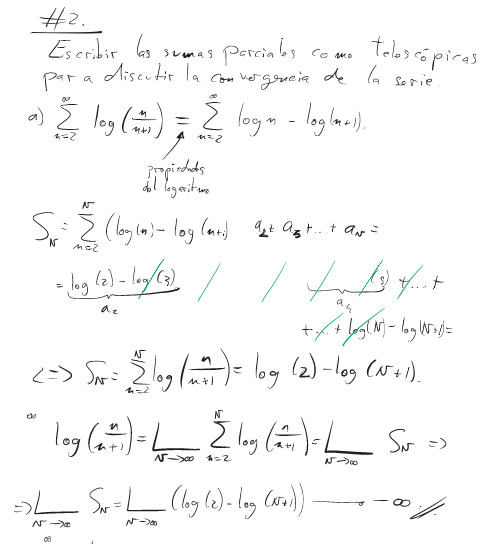 #2.
Escribir las sumas parciales como telescópicas
para discutir la convergencia de la serie.
a) ∞ ∑ n=2 log(n/n+1) = ∞ ∑ n=2 log n - log(n+1).
propiedades
del logaritmo
S_N = N ∑ n=2 (log(n) - log(n+1) a_2 + a_3 + ... + a_N =
= log(2) - log(3) (3) + ... +
a_2
+ ... + log(N) - log(N+1) =
<=> S_N = N ∑ n=2 log(n/n+1) = log(2) - log(N+1).
∞ log(n/n+1) = L N→∞ N ∑ n=2 log(n/n+1) = L N→∞ S_N =>
=> L N→∞ S_N = L N→∞ (log(2) - log(N+1)) — -∞
∞